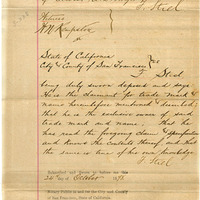 F. Steel
Witness
H. M. Kempston
State of California
City & County of San Francisco } SS
F. Steel
being duly sworn deposes and says
He is the claimant for trade mark &
name hereinbefore mentioned & described
that he is the exclusive owner of said
trade mark and name that he
has read the foregoing claim & specification
and knows the contents thereof and that
the same is true of his own knowledge
F. Steel
Subscribed and sworn to before me this
day of October
Notary Public in and for the City and County
of San Francisco, State of California.